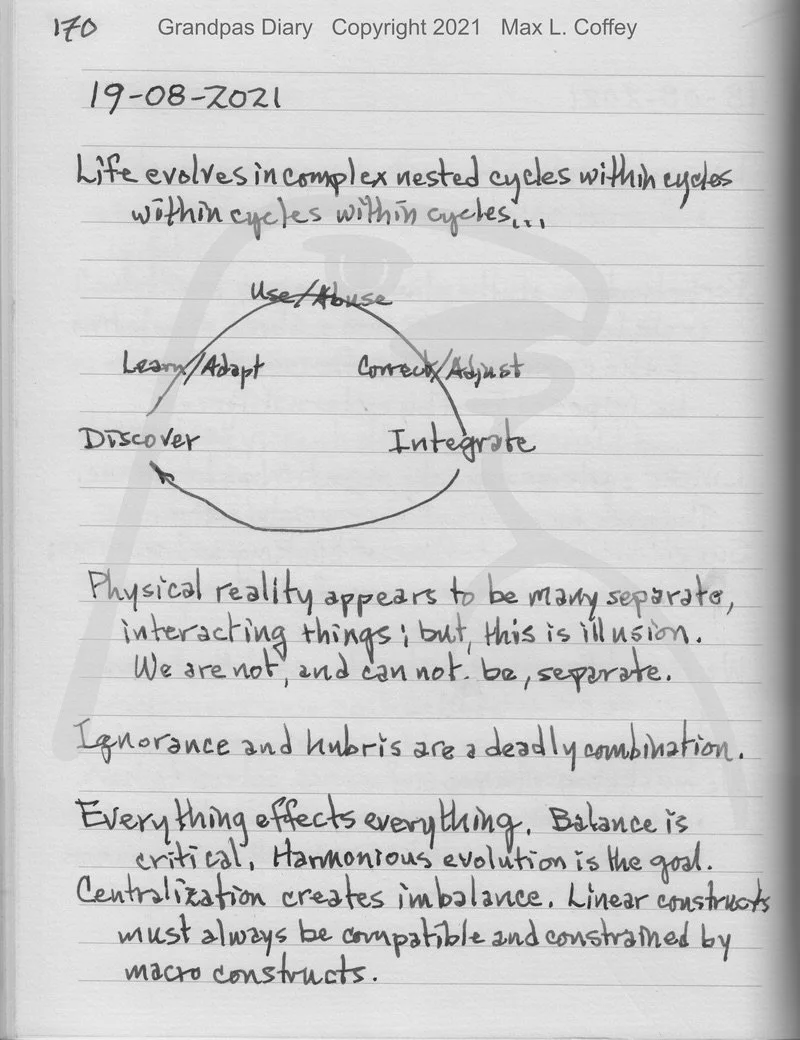 170 Grandpas Diary Copyright 2021 Max L. Coffey
19-08-2021
Life evolves in complex nested cycles within cycles
within cycles within cycles...
Use/Abuse
Learn/Adapt Correct/Adjust
Discover Integrate
Physical reality appears to be many separate,
interacting things; but, this is illusion.
We are not, and can not be, separate.
Ignorance and hubris are a deadly combination.
Everything effects everything. Balance is
critical. Harmonious evolution is the goal.
Centralization creates imbalance. Linear constructs
must always be compatible and constrained by
macro constructs.